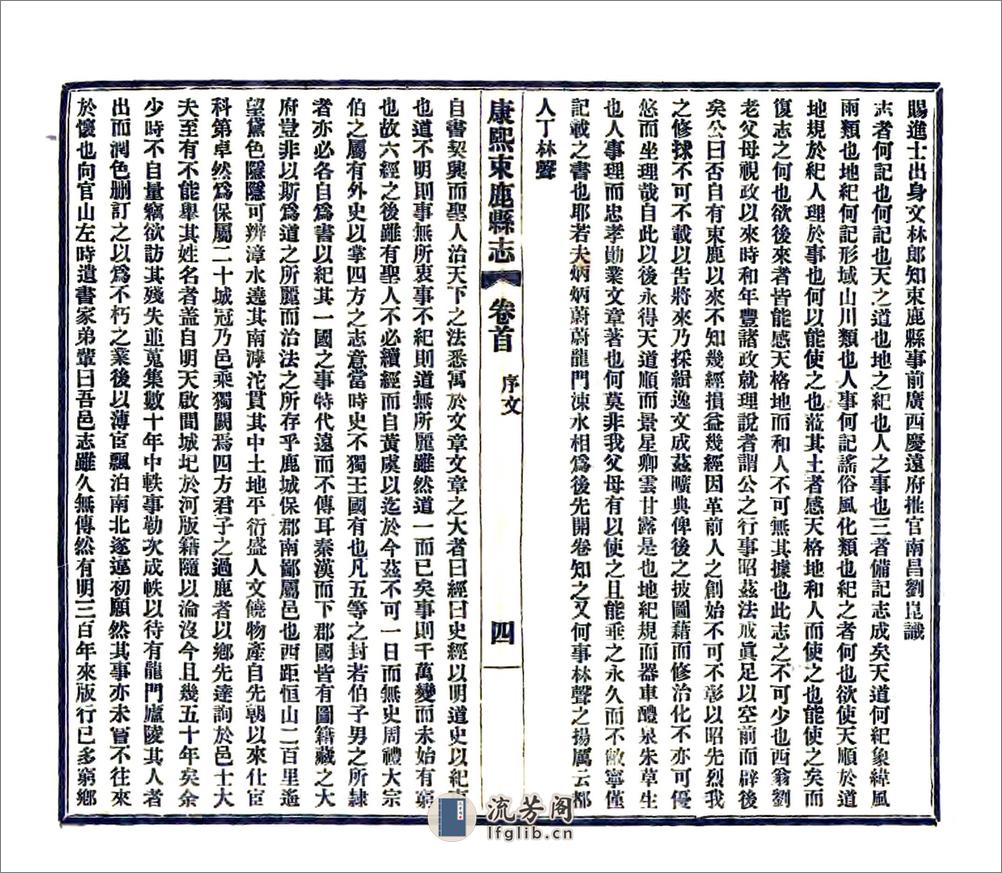 賜進士出身文林郎知束鹿縣事前廣西慶遠府推官南昌劉崑識
志者何記也何記也天之道也地之紀也人之事也三者備記志成矣天道何紀象緯風
雨類也地紀何記形域山川類也人事何記謠俗風化類也紀之者何也欲使天順於道
地規於紀人理於事也何以能使之也蒞其土者感天格地和人而使之也能使之矣而
復志之何也欲後來者皆能感天格地而和人不可無其據也此志之不可少也西翁劉
老父母視政以來時和年豐諸政就理說者謂公之行事昭茲法戒眞足以空前而辟後
矣公曰否自有束鹿以來不知幾經損益幾經因革前人之創始不可不彰以昭先烈我
之修捄不可不載以告將來乃採緝逸文成茲曠典俾後之披圖藉而修治化不亦可優
悠而坐理哉自此以後永得天道順而景星卿雲甘露是也地紀規而器車醴泉朱草生
也人事理而忠孝勛業文章著也何莫非我父母有以使之且能垂之永久而不敝寧僅
記載之書也耶若夫炳炳蔚蔚龍門涑水相爲後先開卷知之又何事林聲之揚厲云郡
人丁林聲
康熙束鹿縣志 卷首 序文 四
自書契興而聖人治天下之法悉寓於文章文章之大者曰經曰史經以明道史以紀事
也道不明則事無所衷事不紀則道無所麗雖然道一而已矣事則千萬變而未始有窮
也故六經之後雖有聖人不必續經而自黃虞以迄於今茲不可一日而無史周禮大宗
伯之屬有外史以掌四方之志意當時史不獨王國有也凡五等之封若伯子男之所隸
者亦必各自爲書以紀其一國之事特代遠而不傳耳秦漢而下郡國皆有圖籍藏之大
府豈非以斯爲道之所麗而治法之所存乎鹿城保郡南鄙屬邑也西距恒山二百里遙
望黛色隱隱可辨漳水遶其南滹沱貫其中土地平衍盛人文饒物產自先朝以來仕宦
科第卓然爲保屬二十城冠乃邑乘獨闕焉四方君子之過鹿者以鄉先達詢於邑士大
夫至有不能舉其姓名者蓋自明天啟間城圮於河版籍隨以淪沒今且幾五十年矣余
少時不自量竊欲訪其殘失並蒐集數十年中軼事勒次成帙以待有龍門廬陵其人者
出而潤色刪訂之以爲不朽之業後以薄宦飄泊南北遂違初願然其事亦未嘗不往來
於懷也向官山左時遺書家弟輩曰吾邑志雖久無傳然有明三百年來版行已多窮鄉
流芳阁
lfglib.cn